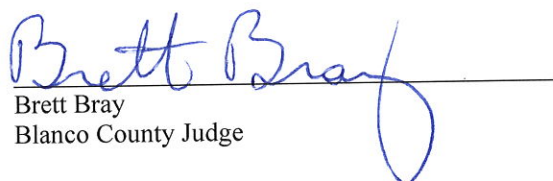 Brett Bray
Brett Bray
Blanco County Judge